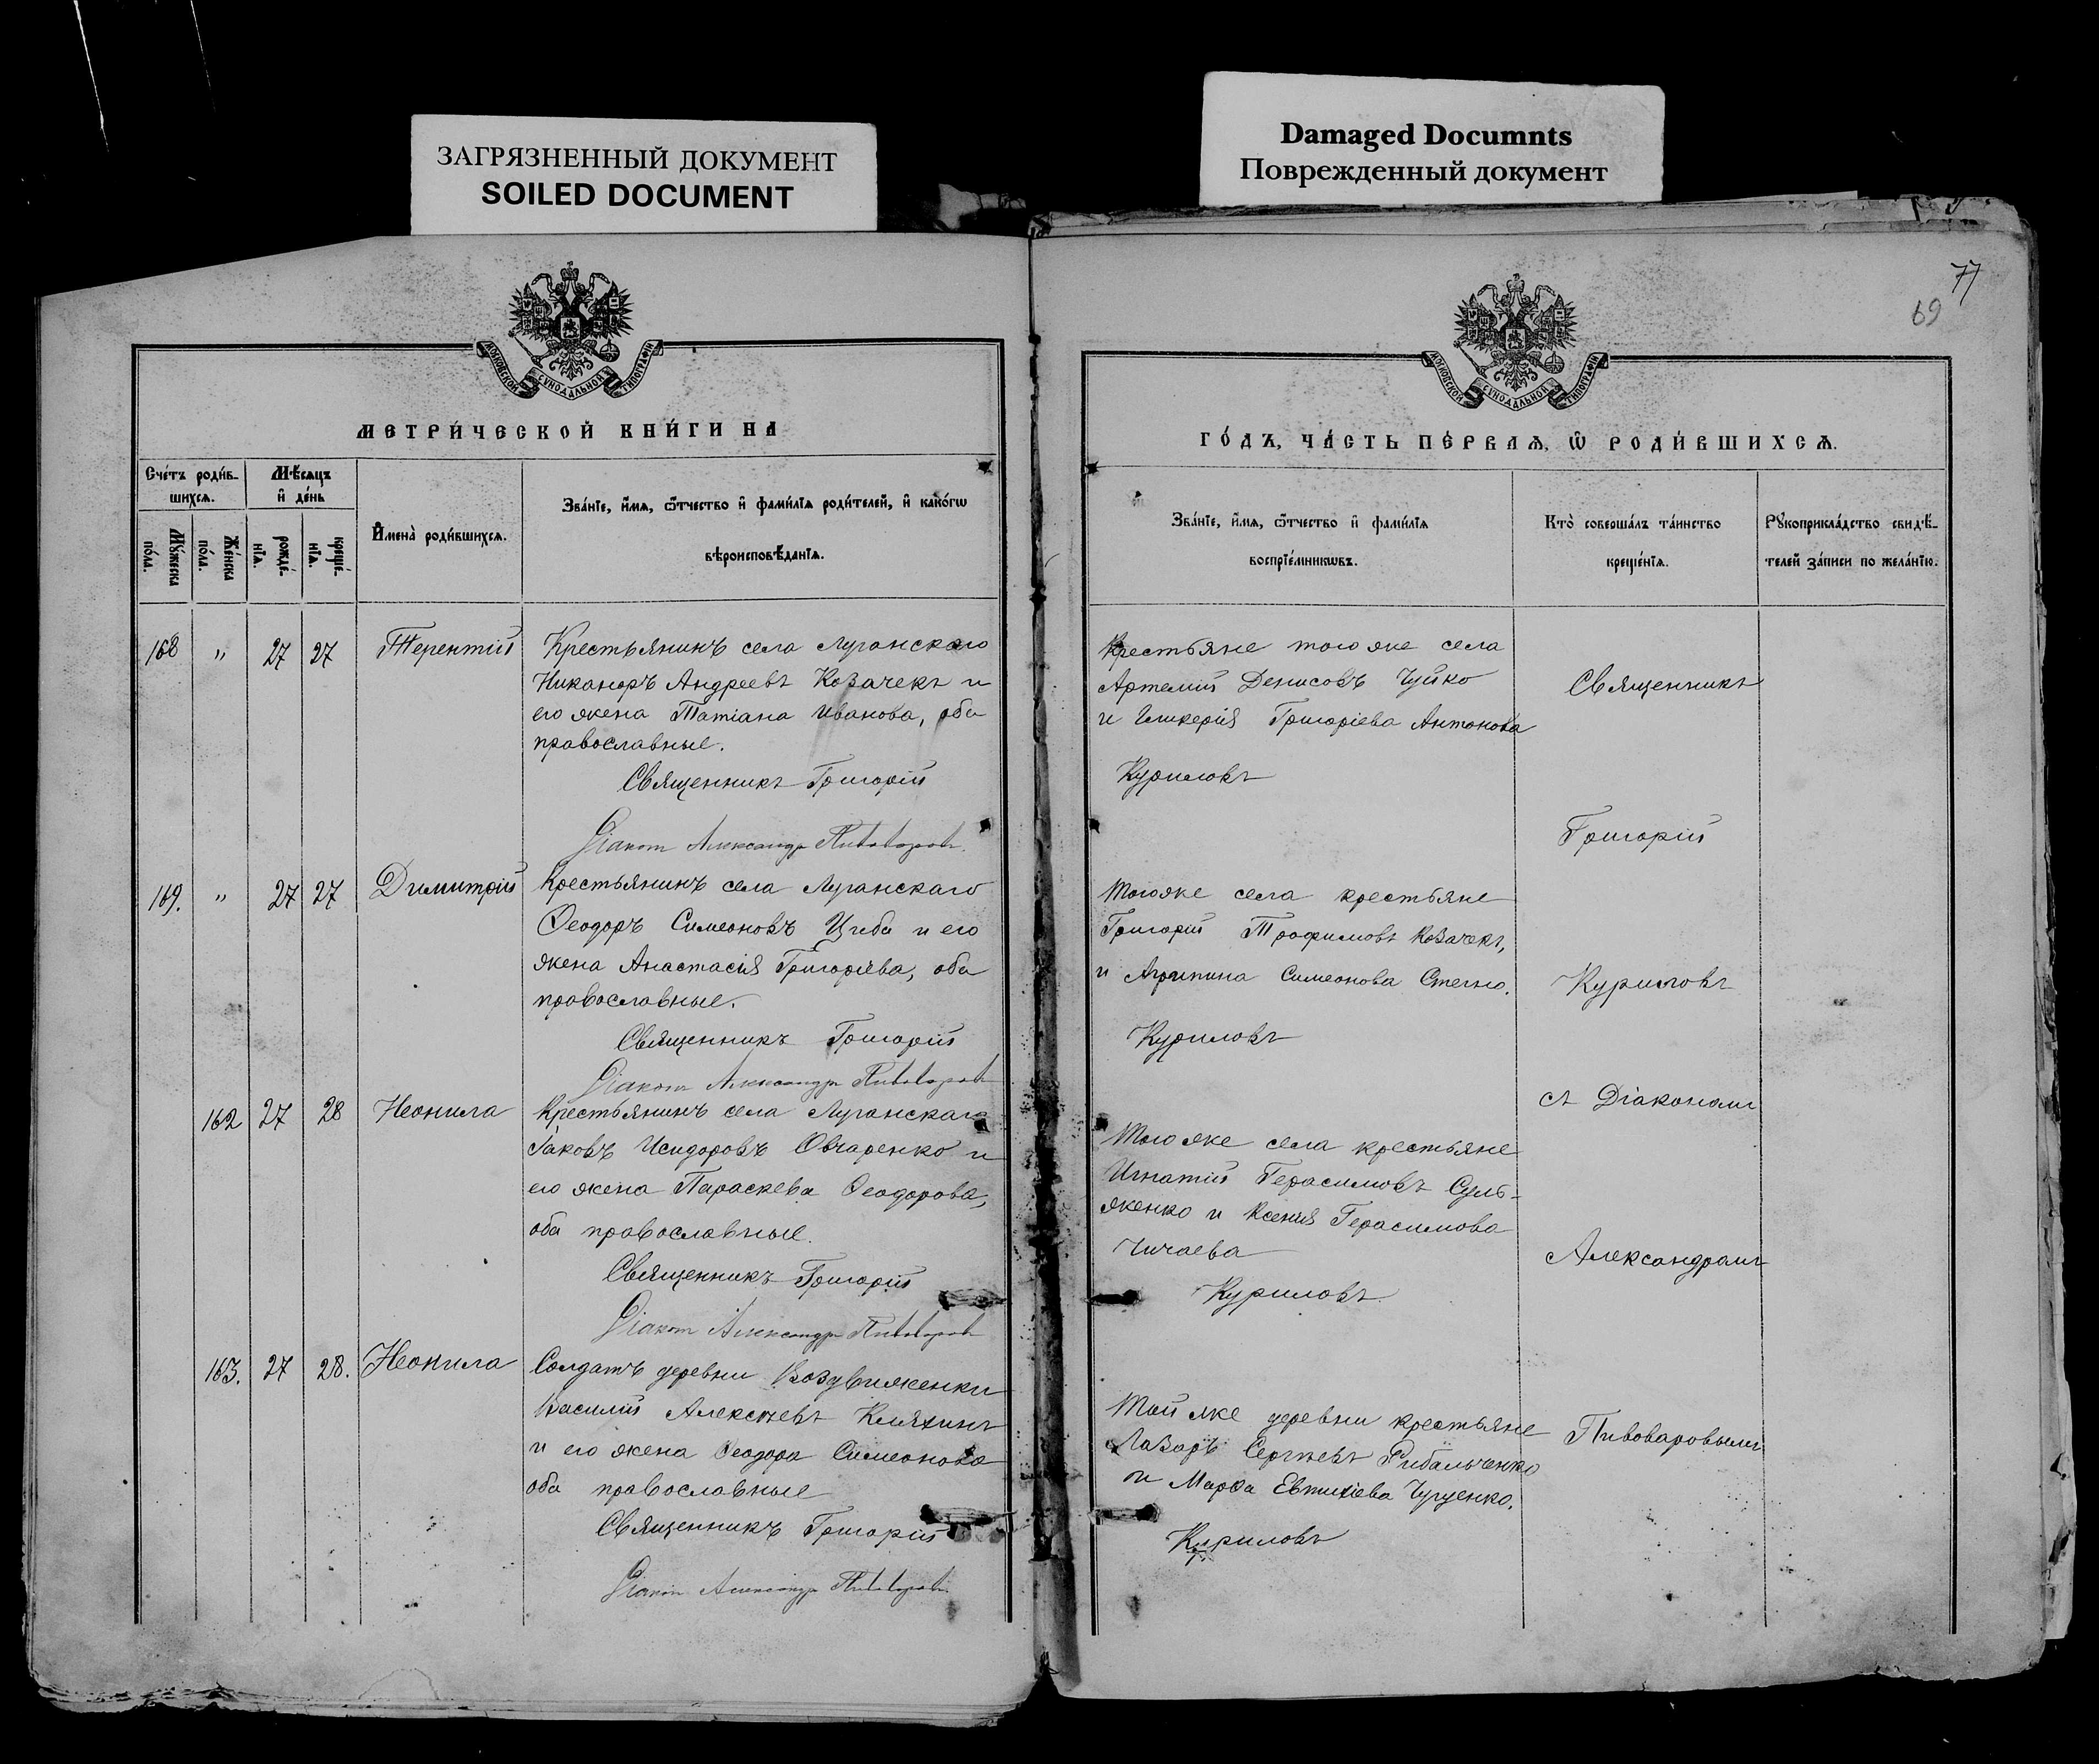 ЗАГРЯЗНЕННЫЙ ДОКУМЕНТ
SOILED DOCUMENT
Damaged Documnts
Поврежденный документ
77
69
МОСКОВСКОЙ СѴНОДАЛЬНОЙ ТИПОГРАФІИ
МЕТРИ́ЧЕСКОЙ КНИ́ГИ НА
Сче́тъ роди́в-
шихсѧ.
Мѣ́сѧцъ
и҆ де́нь
Мꙋ́жеска
по́ла.
Же́нска
по́ла.
рожде́-
нїѧ.
креще́-
нїѧ.
И҆мена̀ роди́вшихсѧ.
Зва́нїе, и҆́мѧ, ѻ҆́тчество и҆ фами́лїѧ роди́телей, и҆ како́гѡ
вѣроисповѣ́данїѧ.
168 " 27 27 Терентій
Крестьянинъ села Луганскаго
Никаноръ Андреевъ Козачекъ и
его жена Татіана Иванова, оба
православные.
Священникъ Григорій
Діаконъ Александръ Пивоваровъ.
169. " 27 27 Димитрій
Крестьянинъ села Луганскаго
Ѳеодоръ Симеоновъ Циба и его
жена Анастасія Григоріева, оба
православные.
Священникъ Григорій
Діаконъ Александръ Пивоваровъ
162 27 28 Неонила
Крестьянинъ села Луганскаго
Іаковъ Исидоровъ Овчаренко и
его жена Параскева Ѳеодорова,
оба православные.
Священникъ Григорій
Діаконъ Александръ Пивоваровъ
163. 27 28. Неонила
Солдатъ деревни Воздвиженки
Василій Алексѣевъ Кляхинъ
и его жена Ѳеодора Симеонова
оба православные
Священникъ Григорій
Діаконъ Александръ Пивоваровъ
МОСКОВСКОЙ СѴНОДАЛЬНОЙ ТИПОГРАФІИ
ГО́ДЪ, ЧА́СТЬ ПЕ́РВАѦ, Ѽ РОДИ́ВШИХСѦ.
Зва́нїе, и҆́мѧ, ѻ҆́тчество и҆ фами́лїѧ
воспрїе́мникѡвъ.
Кто̀ соверша́лъ та́инство
креще́нїѧ.
Рꙋкоприкла́дство свидѣ́-
телей за́писи по жела́нїю.
Крестьяне того же села
Артемій Денисовъ Чуйко
и Гликерія Григоріева Антонова
Куриловъ
Тогоже села крестьяне
Григорій Трофимовъ Козачекъ,
и Агрипина Симеонова Стегно.
Куриловъ
Того же села крестьяне
Игнатій Герасимовъ Суль-
женко и Ксенія Герасимова
Чичаева
Куриловъ
Той же деревни крестьяне
Лазарь Сергѣевъ Рибальченко
и Марѳа Евтихіева Чугуенко.
Куриловъ
Священникъ
Григорій
Куриловъ
съ Діакономъ
Александромъ
Пивоваровымъ